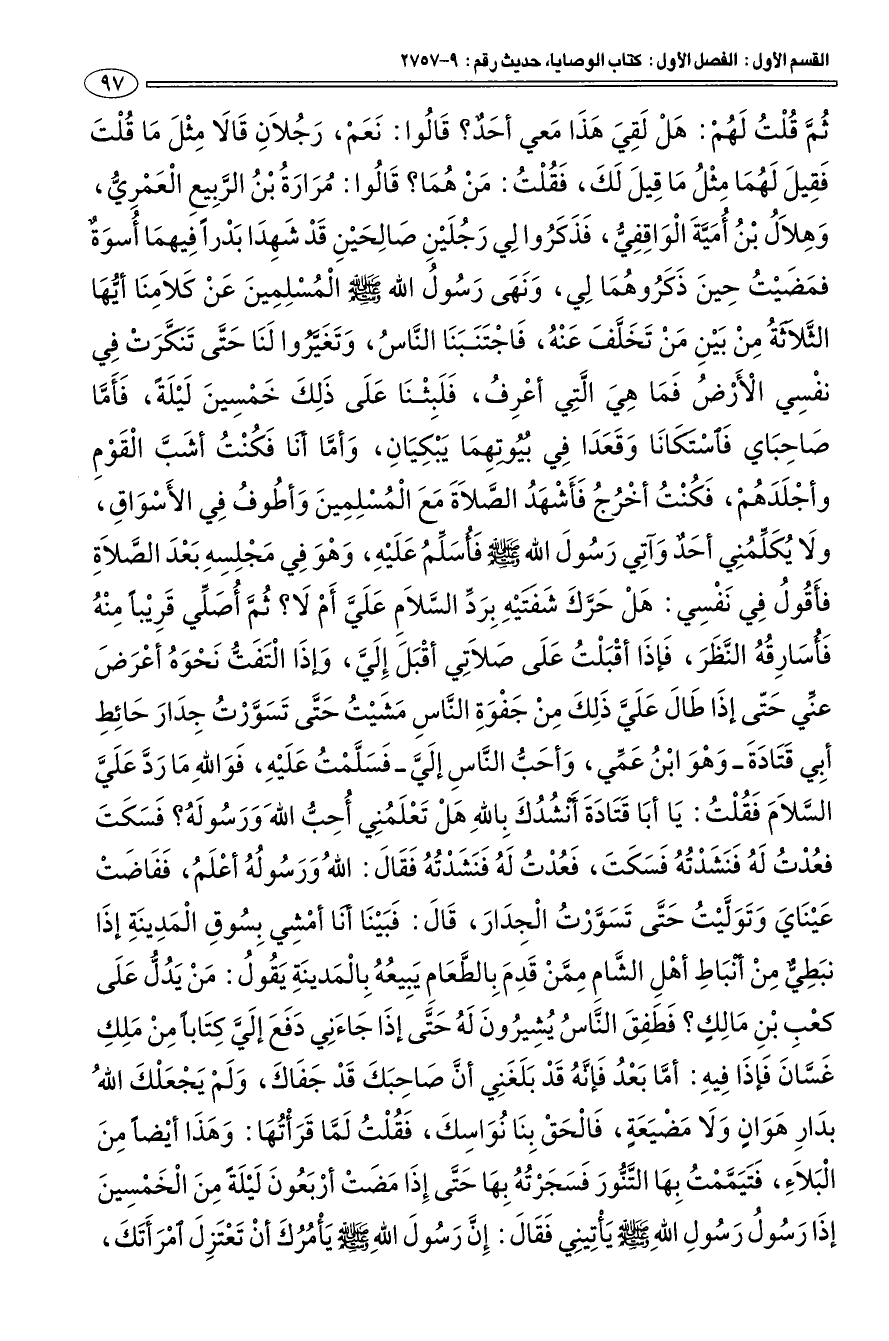 القسم الأول: الفصل الأول: كتاب الوصايا، حديث رقم: ٩-٢٧٥٧
٩٧
ثُمَّ قُلْتُ لَهُمْ: هَلْ لَقِيَ هَذَا مَعي أحَدٌ؟ قَالُوا: نَعَمْ، رَجُلاَنِ قَالَا مِثْلَ مَا قُلْتَ
فَقِيلَ لَهُمَا مِثْلُ مَا قِيلَ لَكَ، فَقُلْتُ: مَنْ هُمَا؟ قَالُوا: مُرَارَةُ بْنُ الرَّبِيعِ الْعَمْرِيُّ،
وَهِلاَلُ بْنُ أُمَيَّةَ الْوَاقِفِيُّ، فَذَكَرُوا لِي رَجُلَيْنِ صَالِحَيْنِ قَدْ شَهِدَا بَدْراً فِيهِمَا أُسوَةٌ
فمَضَيْتُ حِينَ ذَكَرُوهُمَا لِي، وَنَهَى رَسُولُ الله ﷺ الْمُسْلِمِينَ عَنْ كَلاَمِنَا أيُّهَا
الثَّلاَثَةُ مِنْ بَيْنِ مَنْ تَخَلَّفَ عَنْهُ، فَاجْتَنَبَنَا النَّاسُ، وَتَغَيَّرُوا لَنَا حَتَّى تَنَكَّرَتْ فِي
نفْسِي الْأَرْضُ فَمَا هِيَ الَّتِي أعْرِفُ، فَلَبِثْنَا عَلَى ذَلِكَ خَمْسِينَ لَيْلَةً، فَأَمَّا
صَاحِبَاي فَٱسْتَكَانَا وَقَعَدَا فِي بُيُوتِهِمَا يَبْكِيَانِ، وَأمَّا أنَا فَكُنْتُ أشَبَّ الْقَوْمِ
وأجْلَدَهُمْ، فَكُنْتُ أخْرُجُ فَأَشْهَدُ الصَّلاَةَ مَعَ الْمُسْلِمِينَ وَأطُوفُ فِي الأَسْوَاقِ،
ولَا يُكَلِّمُنِي أحَدٌ وَآتِي رَسُولَ الله ﷺ فَأُسَلِّمُ عَلَيْهِ، وَهْوَ فِي مَجْلِسِهِ بَعْدَ الصَّلاَةِ
فأَقُولُ فِي نَفْسِي: هَلْ حَرَّكَ شَفَتَيْهِ بِرَدِّ السَّلاَمِ عَلَيَّ أَمْ لَا؟ ثُمَّ أُصَلِّي قَرِيْباً مِنْهُ
فَأُسَارِقُهُ النَّظَرَ، فَإِذَا أقْبَلْتُ عَلَى صَلاَتِي أقْبَلَ إِلَيَّ، وَإِذَا الْتَفَتُّ نَحْوَهُ أعْرَضَ
عنِّي حَتّى إِذَا طَالَ عَلَيَّ ذَلِكَ مِنْ جَفْوَةِ النَّاسِ مَشَيْتُ حَتَّى تَسَوَّرْتُ جِدَارَ حَائِطِ
أبِي قَتَادَةَ - وَهْوَ ابْنُ عَمِّي، وَأحَبُّ النَّاسِ إِلَيَّ - فَسَلَّمْتُ عَلَيْهِ، فَوَاللهِ مَا رَدَّ عَلَيَّ
السَّلاَمَ فَقُلْتُ: يَا أبَا قَتَادَةَ أَنْشُدُكَ بِاللهِ هَلْ تَعْلَمُنِي أُحِبُّ اللهَ وَرَسُولَهُ؟ فَسَكَتَ
فعُدْتُ لَهُ فَنَشَدْتُهُ فَسَكَتَ، فَعُدْتُ لَهُ فَنَشَدْتُهُ فَقَالَ: اللهُ وَرَسُولُهُ أعْلَمُ، فَفَاضَتْ
عَيْنَايَ وَتَوَلَّيْتُ حَتَّى تَسَوَّرْتُ الْجِدَارَ، قَالَ: فَبَيْنَا أنَا أمْشِي بِسُوقِ الْمَدِينَةِ إِذَا
نبَطِيٌّ مِنْ أنْبَاطِ أهْلِ الشَّامِ مِمَّنْ قَدِمَ بِالطَّعَامِ يَبِيعُهُ بِالْمَدينَةِ يَقُولُ: مَنْ يَدُلُّ عَلَى
كعْبِ بْنِ مَالِكٍ؟ فَطَفِقَ النَّاسُ يُشِيرُونَ لَهُ حَتَّى إِذَا جَاءَنِي دَفَعَ إِلَيَّ كِتَاباً مِنْ مَلِكِ
غَسَّانَ فَإِذَا فِيهِ: أمَّا بَعْدُ فَإِنَّهُ قَدْ بَلَغَنِي أنَّ صَاحِبَكَ قَدْ جَفَاكَ، وَلَمْ يَجْعَلْكَ اللهُ
بِدَارِ هَوَانٍ وَلَا مَضْيَعَةٍ، فَالْحَقْ بِنَا نُوَاسِكَ، فَقُلْتُ لَمَّا قَرَأْتُهَا: وَهَذَا أيْضاً مِنَ
الْبَلاَءِ، فَتَيَمَّمْتُ بِهَا التَّنُّورَ فَسَجَرْتُهُ بِهَا حَتَّى إِذَا مَضَتْ أرْبَعُونَ لَيْلَةً مِنَ الْخَمْسِينَ
إذَا رَسُولُ رَسُولِ اللهِ ﷺ يَأْتِينِي فَقَالَ: إِنَّ رَسُولَ اللهِ ﷺ يَأْمُرُكَ أنْ تَعْتَزِلَ ٱمْرَأَتَكَ،